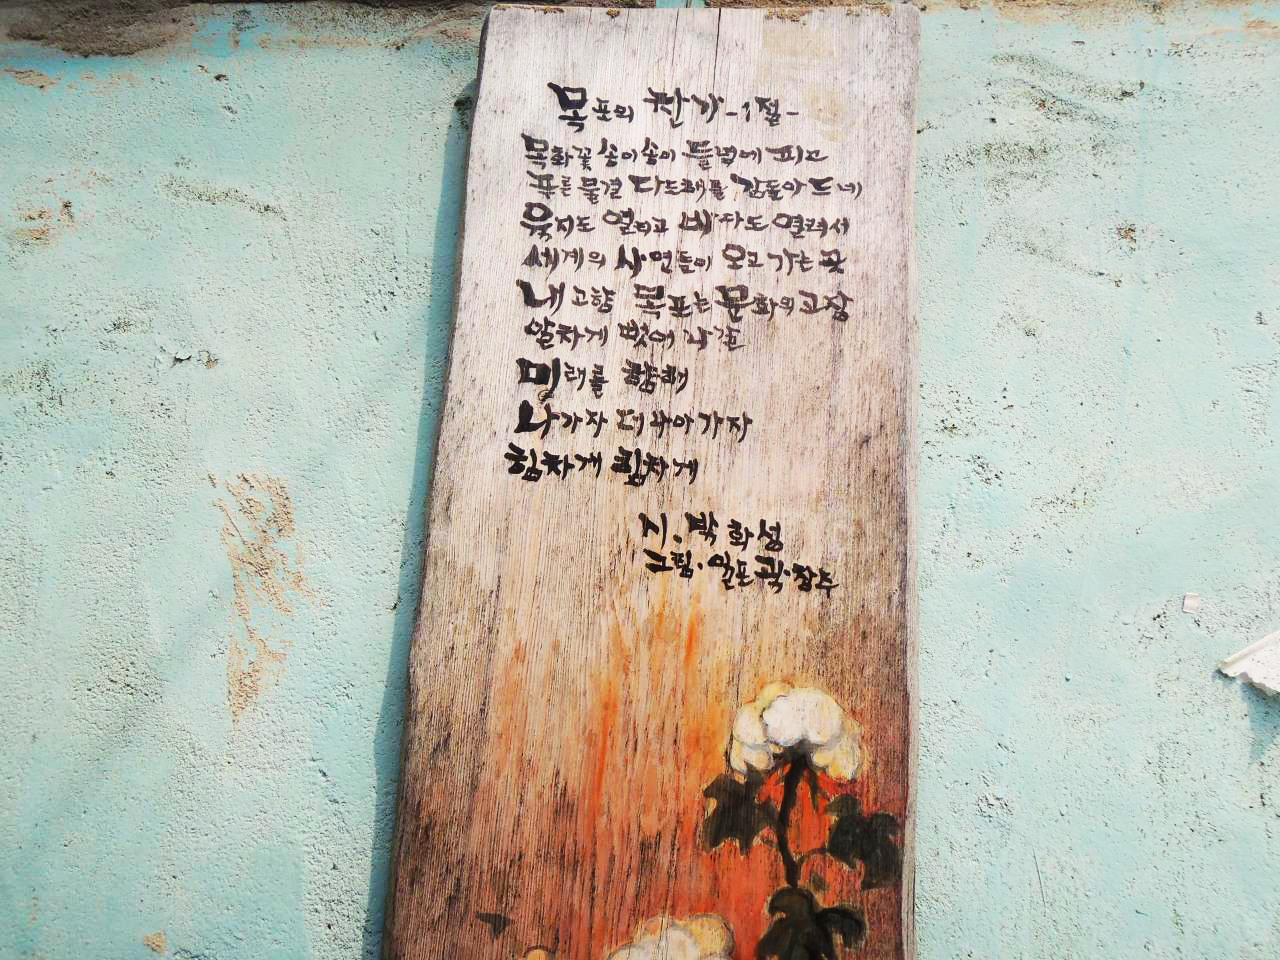 목포의 찬가 -1절-
목화꽃 송이송이 들녘에 피고
푸른물결 다도해를 감돌아 드네
육지도 열리고 바다도 열려서
세계의 사연들이 오고 가는 곳
내 고향 목포는 문화의 고장
알차게 벗어 나갈
미래를 향해
나가자 더 나아가자
힘차게 힘차게
지.박화성
그림.일포 곽.창주